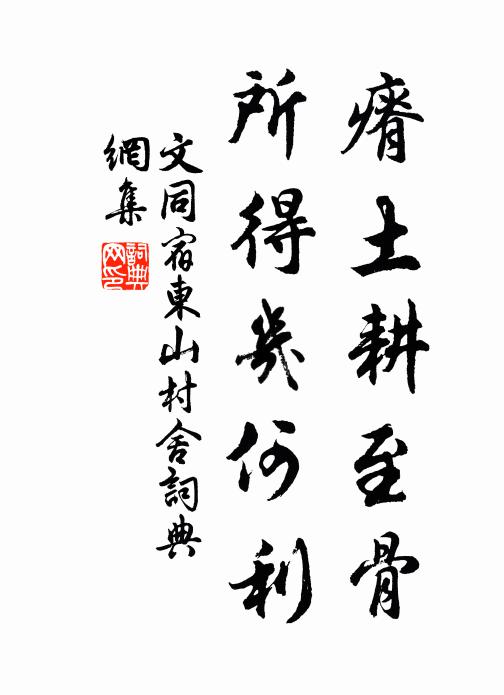 瘠土耕至骨
所得幾何利
文同宿東山村舍詞典
網集
詞典
网印